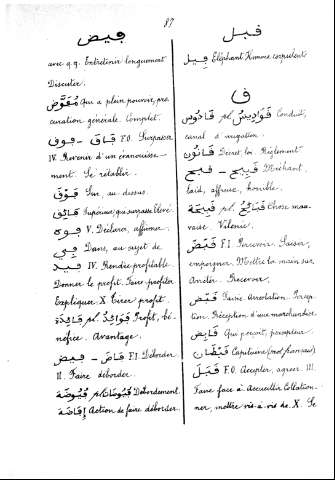 87
فيض
avec q.q. Entretenir longuement
Discuter.
مُفَوَّض Qui a plein pouvoir, pro
curation générale. Complet.
فاق - فوق F.O. Surpasser
IV. Revenir d'un évanouisse-
ment. Se rétablir.
فَوْقَ Sur, au dessus.
فائق Supérieur, qui surpasse. Élevé.
فوه V. Déclarer, affirmer.
فِي Dans, au sujet de
فيد IV. Rendre profitable
Donner le profit. Faire profiter
Expliquer X tirer profit.
فَائِدَة pl. فَوَائِد Profit, bé-
néfice. Avantage.
فاض - فيض F.I Déborder
II. Faire déborder.
فُيُوضَة pl. فُيُوضَات Débordement.
إِفَاضَة Action de faire déborder.
فيل
فِيل Eléphant Homme corpulent
ق
قَادُوس pl. قَوَادِيس Conduit,
canal d'irrigation.
قَانُون Décret, loi. Règlement
قبح - قَبِيح Méchant,
laid, affreux, horrible.
قَبِيحَة pl. قَبَائِح Chose mau-
vaise. Vilenie.
قَبَضَ F.I Percevoir. Saisir,
empoigner. Mettre la main sur.
Arrêter. Recevoir.
قَبْض Saisie Arrestation. Percep-
tion. Réception d'une marchandise.
قَابِض Qui perçoit, percepteur.
قَبْطَان Capitaine (mot français)
قَبَلَ F.O. Accepter, agréer. III.
Faire face à Accueillir Collation-
ner, mettre vis-à-vis de X. Se